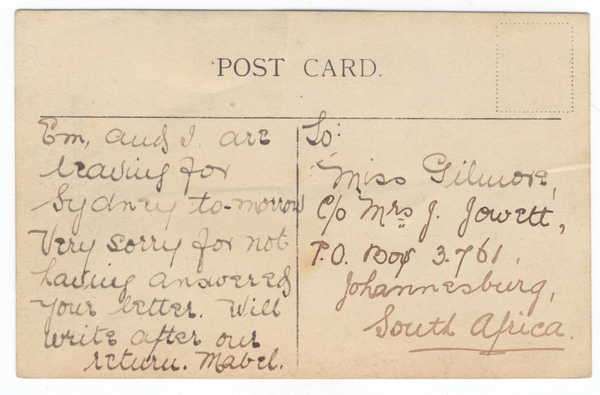 POST CARD.
Em, and I. are
leaving for
Sydney to-morrow
Very sorry for not
having answered
your letter. Will
write after our
return. Mabel.
To:
Miss Gilmore,
C/o Mrs J. Jowett,
P.O. Box 3761,
Johannesburg,
South Africa.